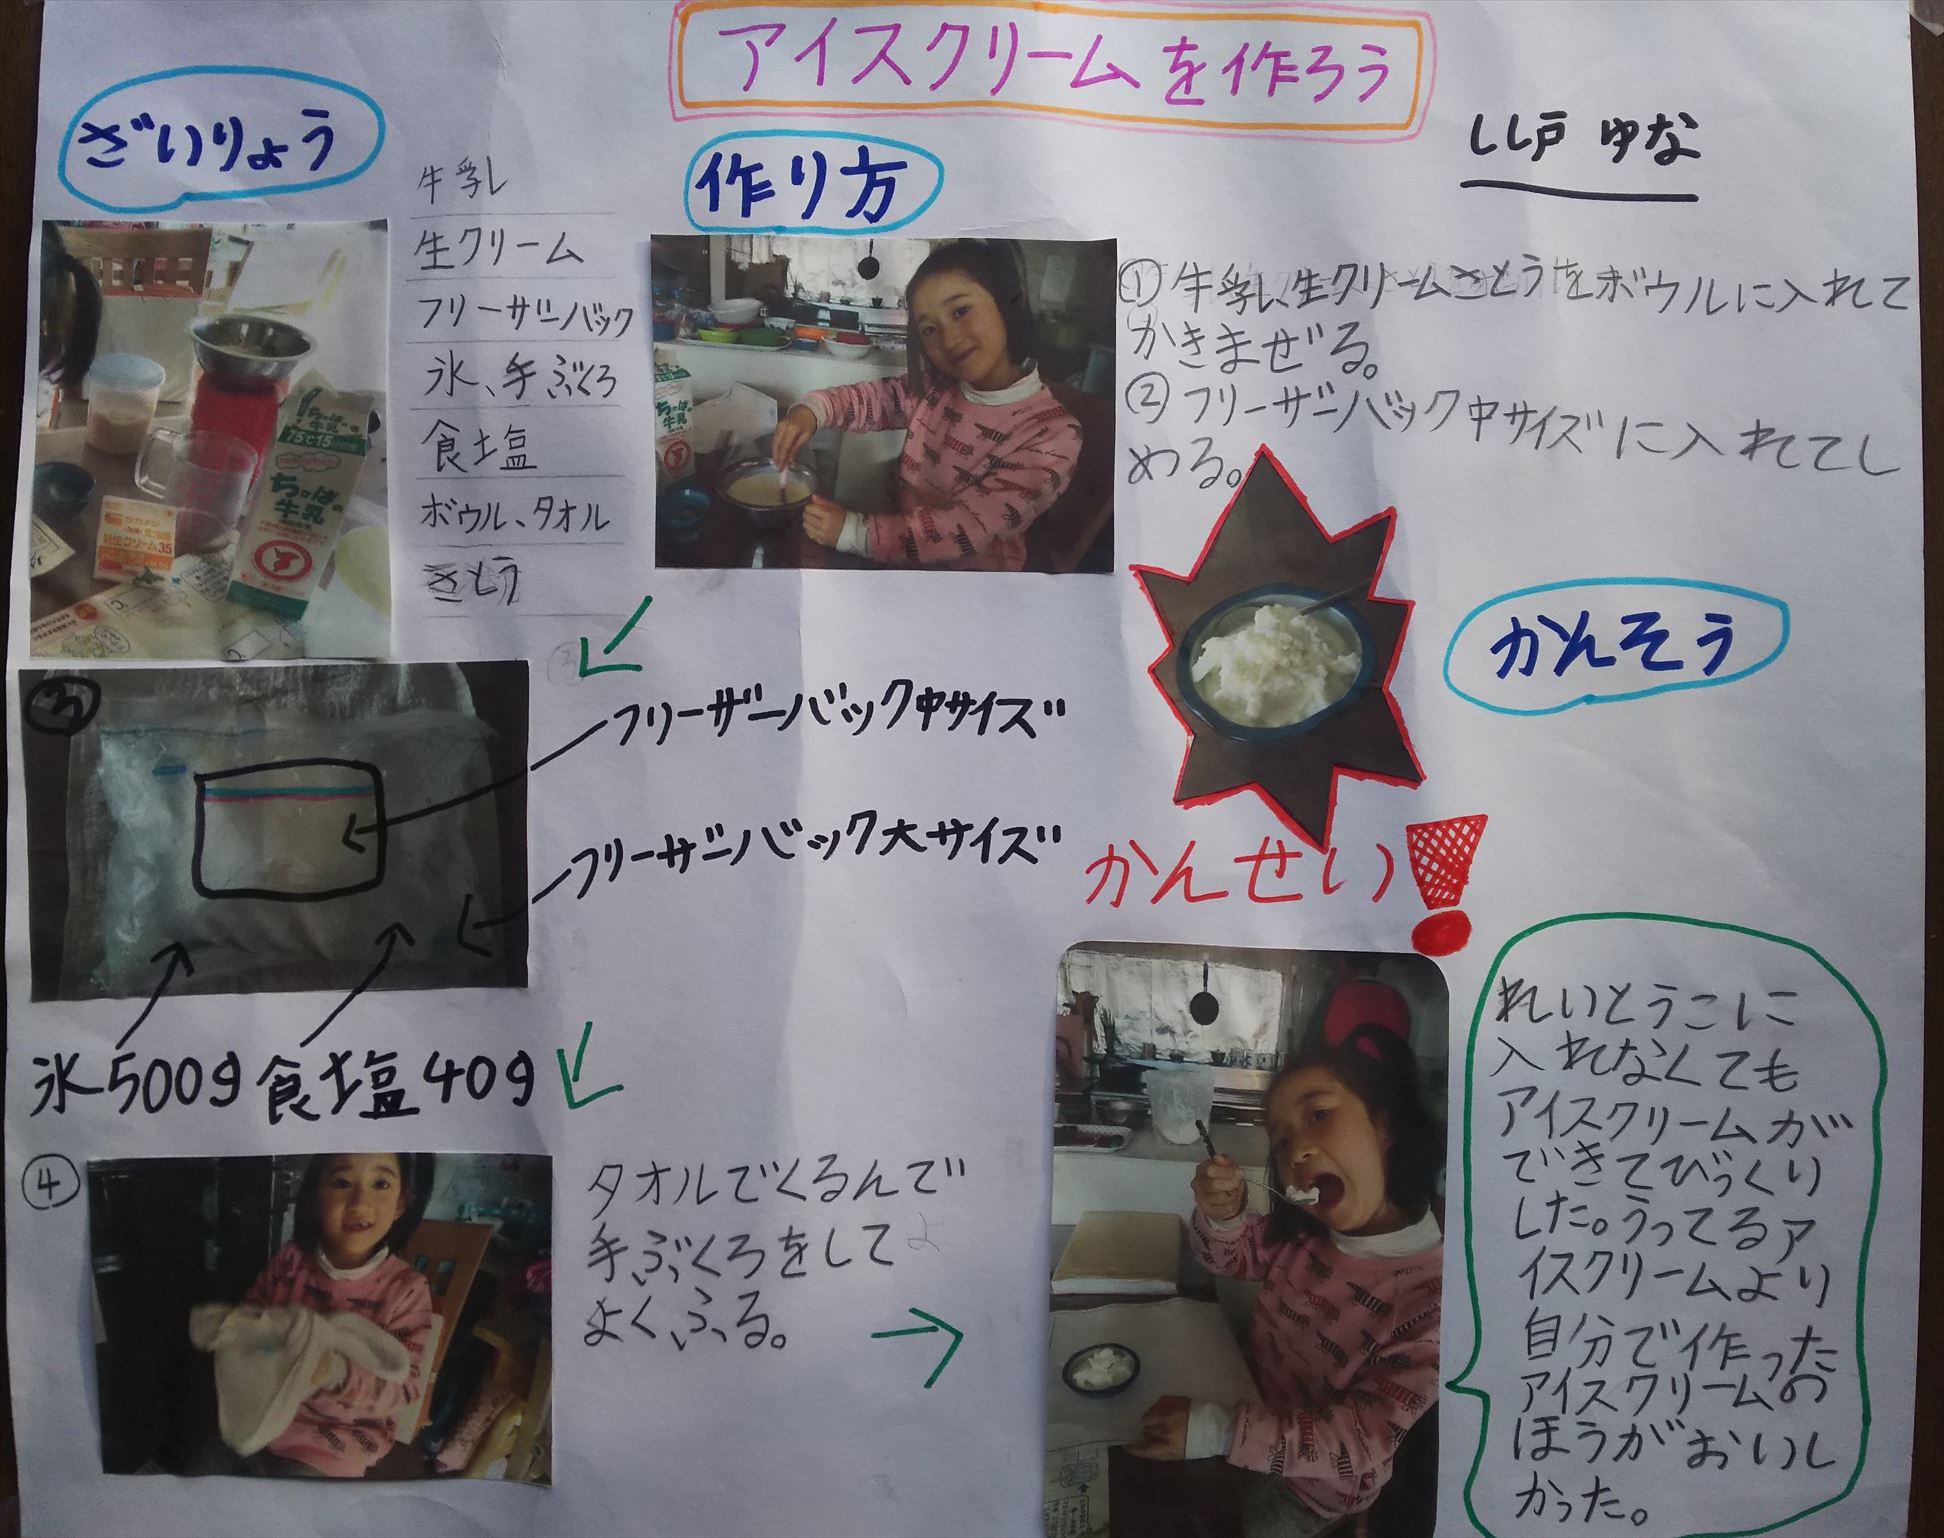 アイスクリームを作ろう
しし戸 ゆな
ざいりょう
牛乳
生クリーム
フリーザーバック
氷、手ぶくろ
食塩
ボウル、タオル
さとう
ちばの
牛乳
75℃15
ちばの
牛乳
タカナシ
純生クリーム35
作り方
牛乳
① 牛乳、生クリームさとうをボウルに入れて
かきまぜる。
② フリーザーバック中サイズに入れてし
める。
③
フリーザーバック中サイズ
フリーザーバック大サイズ
氷500g 食塩40g
④
タオルでくるんで
手ぶくろをして
よくふる。
かんせい!
かんそう
れいとうこに
入れなくても
アイスクリームが
できてびっくり
した。うってるア
イスクリームより
自分で作った
アイスクリームの
ほうがおいし
かった。